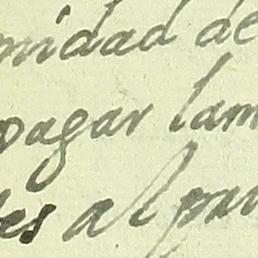 nidad de
pagar lam
es al par